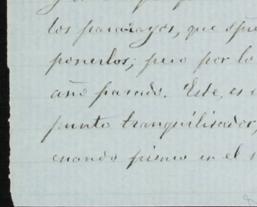 los pararayos, que
ponerlos; pero por lo
año pasado. Este, es
punto tranquilisador,
cuando pienso en el